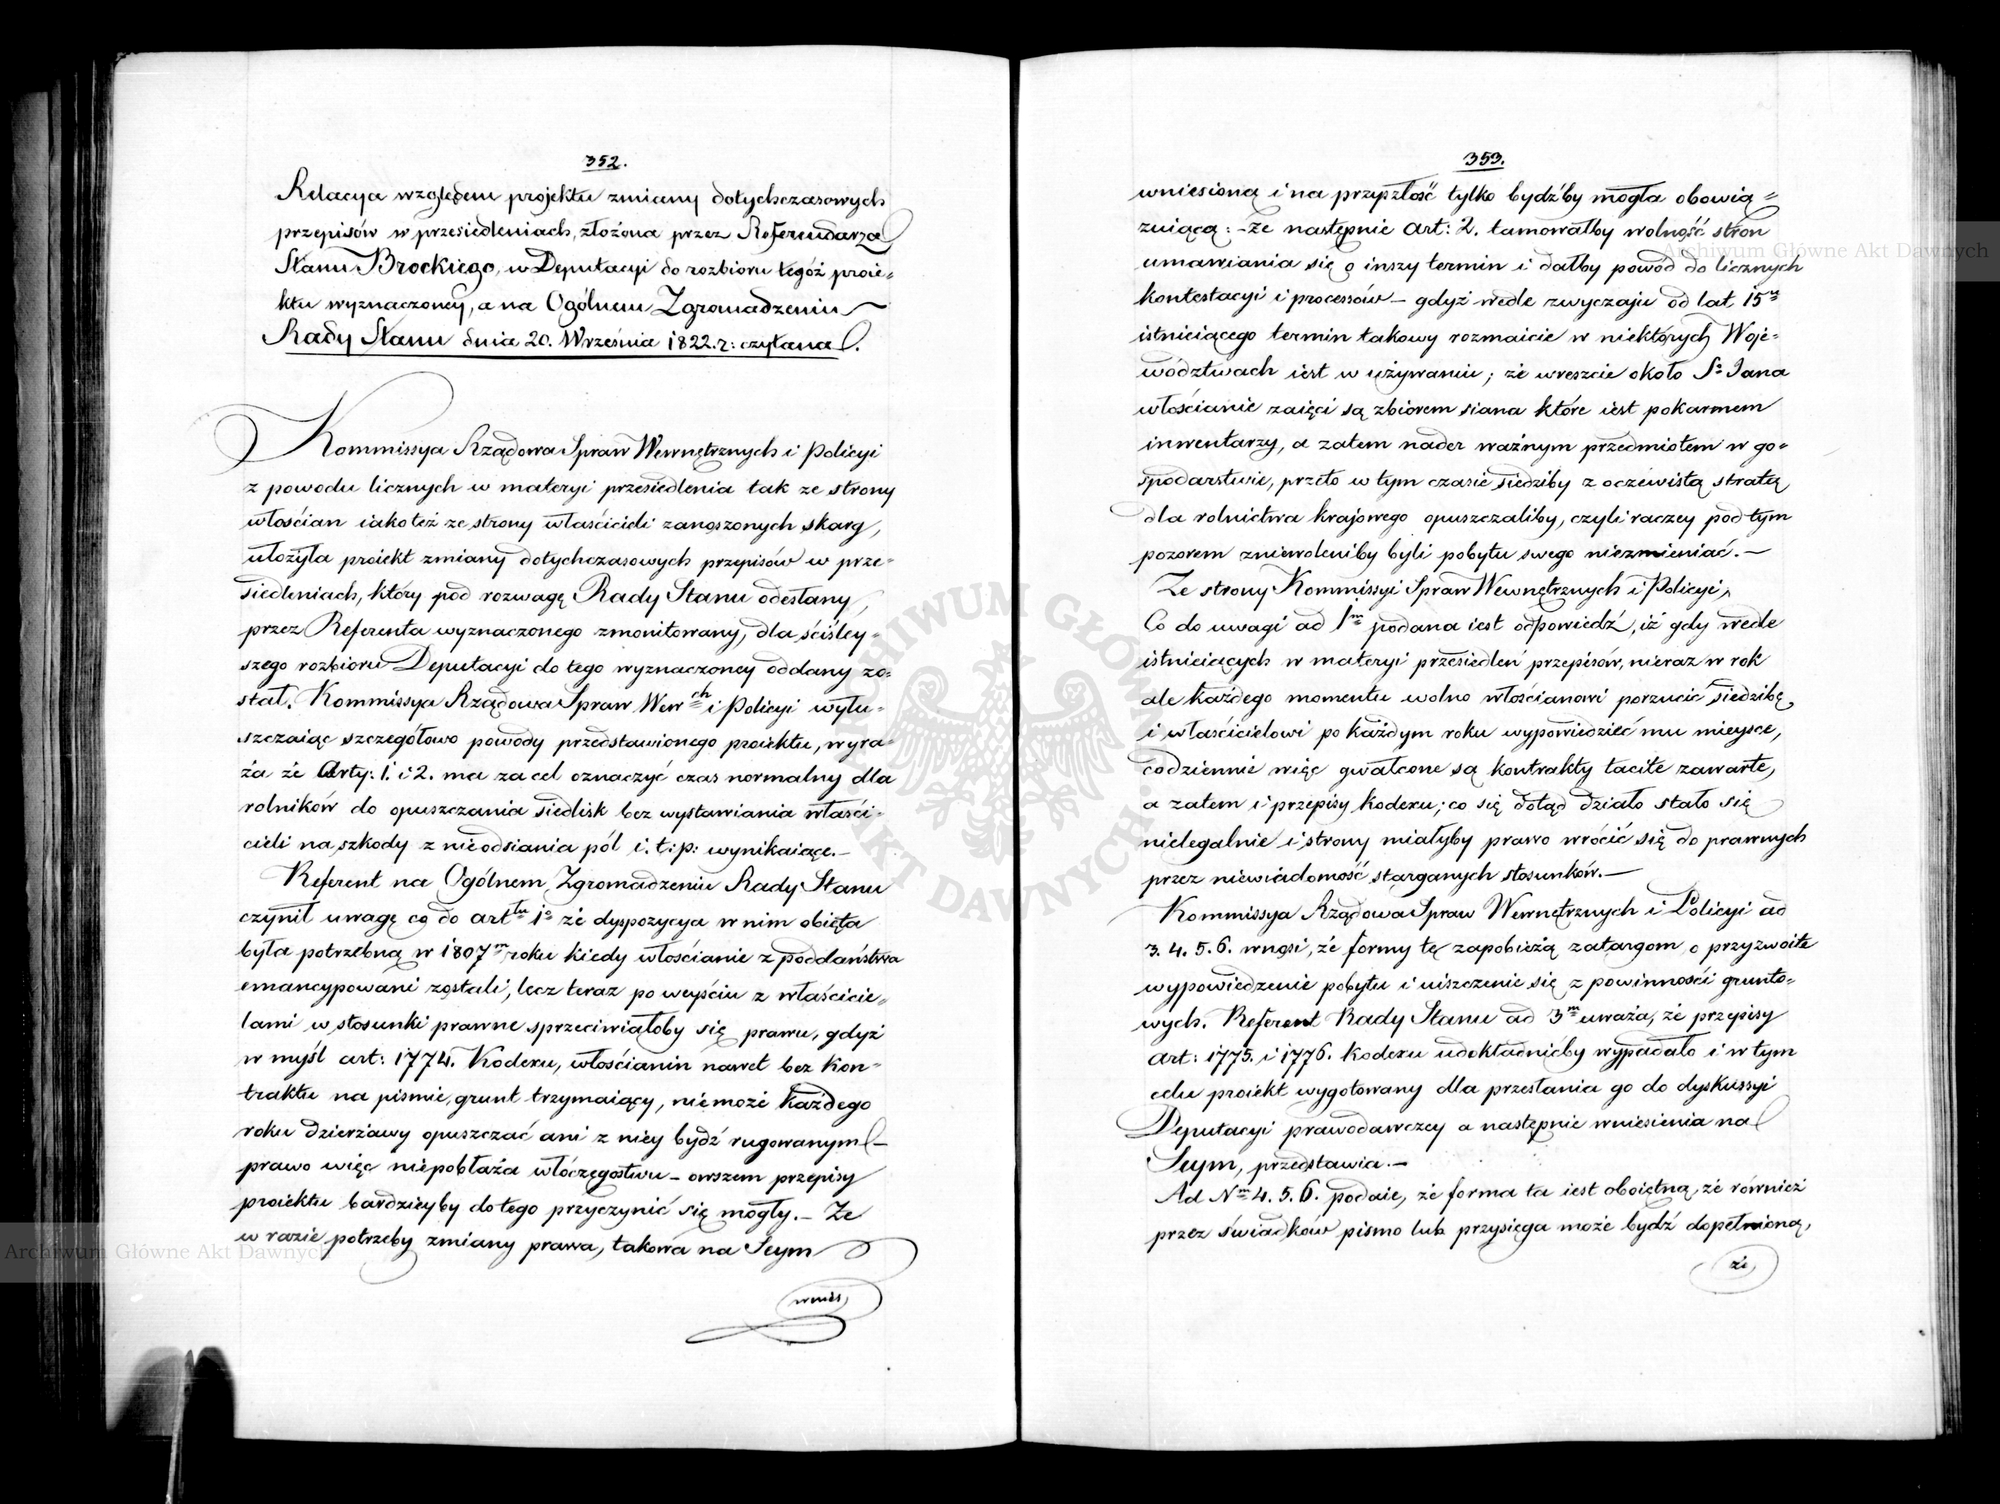 352.
Relacya względem projektu zmiany dotychczasowych
przepisów w przesiedleniach, złożona przez Referendarza
Stanu Brockiego, w Deputacyi do rozbioru tegóż proie=
ktu wyznaczoney, a na Ogólnem Zgromadzeniu
Rady Stanu dnia 20. Września 1822. r: czytana.
Kommissya Rządowa Spraw Wewnętrznych i Policyi
z powodu licznych w materyi przesiedlenia tak ze strony
włościan iako też ze strony właścicieli zanoszonych skarg,
ułożyła proiekt zmiany dotychczasowych przepisów w prze=
siedleniach, który pod rozwagę Rady Stanu odesłany,
przez Referenta wyznaczonego zmonitowany, dla ściśley=
szego rozbioru Deputacyi do tego wyznaczoney oddany zo=
stał. Kommissya Rządowa Spraw Wewch i Policyi wyłu=
szczaiąc szczegółowo powody przedstawionego proiektu, wyra=
ża że Arty: 1. i 2. ma za cel oznaczyć czas normalny dla
rolników do opuszczania siedlisk bez wystawiania właści=
cieli na szkody z nieodsiania pól i. t: p: wynikaiące.—
Referent na Ogólnem Zgromadzeniu Rady Stanu
czynił uwagę co do arttu 1o że dyspozycya w nim obięta
była potrzebną w 1807m roku kiedy włościanie z poddaństwa
emancypowani zostali, lecz teraz po weyściu z właścicie=
lami w stosunki prawne sprzeciwiałoby się prawu, gdyż
w myśl art: 1774. Kodexu, włościanin nawet bez kon=
traktu na piśmie, grunt trzymaiący, niemoże każdego
roku dzierżawy opuszczać ani z niey bydź rugowanym—
prawo więc niepobłaża włóczęgostwu — owszem przepisy
proiektu bardzieyby do tego przyczynić się mogły.— Że
w razie potrzeby zmiany prawa, takowa na Seym
wnies
353.
wniesioną i na przyszłość tylko bydźby mogła obowią=
zuiącą: — że następnie art: 2. tamowałby wolność stron
umawiania się o inszy termin i dałby powód do licznych
kontestacyi i processów — gdyż wedle zwyczaju od lat 15u
istniciącego termin takowy rozmaicie w niektórych Woje=
wództwach iest w używaniu; że wreszcie około So Jana
włościanie zaięci są zbiorem siana które iest pokarmem
inwentarzy, a zatem nader ważnym przedmiotem w go=
spodarstwie, przeto w tym czasie siedziby z oczewistą stratą
dla rolnictwa krajowego opuszczaliby, czyli raczey pod tym
pozorem zniewoleniby byli pobytu swego niezmieniać.—
Ze strony Kommissyi Spraw Wewnętrznych i Policyi,
Co do uwagi ad 1m podana iest odpowiedź, iż gdy wedle
istniciących w materyi przesiedleń przepisów, nieraz w rok
ale każdego momentu wolno włościanowi porzucić siedzibę,
i właścicielowi po każdym roku wypowiedzieć mu mieysce,
codziennie więc gwałcone są kontrakty tacite zawarte,
a zatem i przepisy kodexu; co się dotąd działo stało się
nielegalnie i strony miałyby prawo wrócić się do prawnych
przez niewiadomość stárganych stosunków.—
Kommissya Rządowa Spraw Wewnętrznych i Policyi ad
3. 4. 5. 6. wnosi, że formy tę zapobieżą zatargom o przyzwoite
wypowiedzenie pobytu i uiszczenie się z powinności grunto=
wych. Referent Rady Stanu ad 3m uważa, że przepisy
art: 1775. i 1776. Kodexu udokładnićby wypadało i w tym
celu proiekt wygotowany dla przesłania go do dyskussyi
Deputacyi prawodawczey a następnie wniesienia na
Seym, przedstawia.—
Ad Nm 4. 5. 6. podaie, że forma ta iest oboiętną, że również
przez świadków pismo lub przysięga może bydź dopełnioną,
że